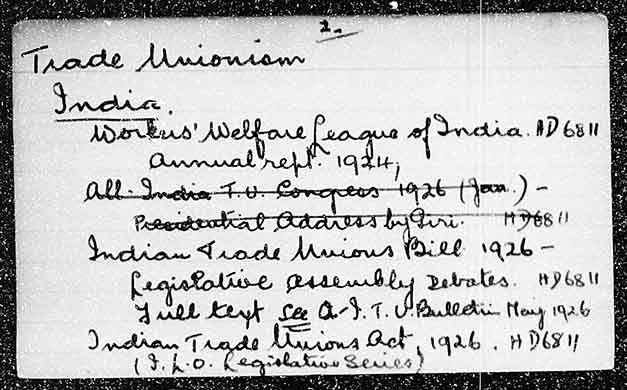 2.
Trade Unionism
India.
Workers' Welfare League of India. HD6811
Annual rept. 1924,
All-India T.U. Congress 1926 (Jan.) -
Presidential Address by Giri. HD6811
Indian Trade Unions Bill 1926 -
Legislative Assembly Debates. HD6811
Full text see A-I.T.U Bulletin May 1926
Indian Trade Unions Act, 1926. HD6811
(I.L.O. Legislative Series)